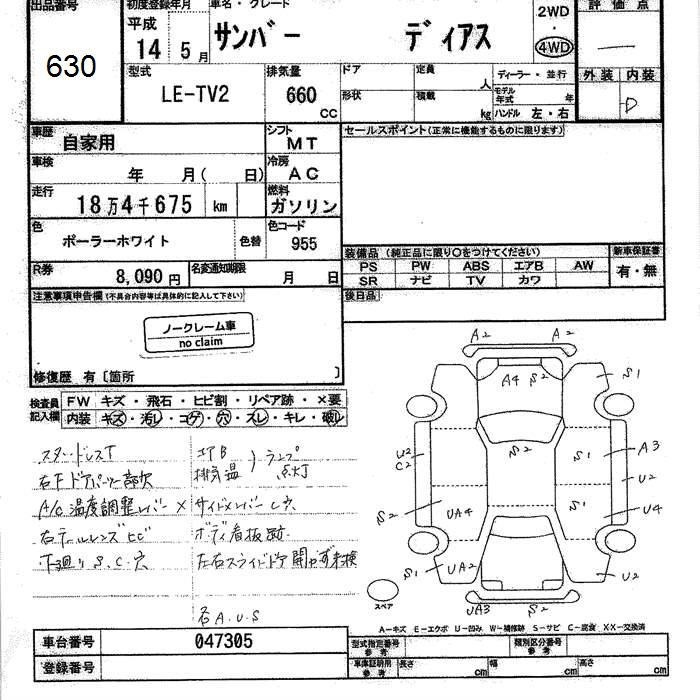 出品番号
630
初度登録年月
平成 14年 5月
車名・グレード
サンバー ディアス
2WD
・
4WD
評価点
—
外装 内装
D
型式
LE-TV2
排気量
660 CC
ドア
形状
定員 人
積載 kg
ディーラー・並行
モデル年式 年
ハンドル 左・右
車歴
自家用
シフト
MT
セールスポイント(正常に機能するものに限ります)
車検
年 月( 日)
冷房
AC
走行
18万4千675 km
燃料
ガソリン
色
ポーラーホワイト
色替
色コード
955
装備品 (純正品に限り○をつけてください)
新車保証書
PS PW ABS エアB AW
SR ナビ TV カワ
有・無
R券
8,090円
名変通知期限
月 日
後日品
注意事項申告欄(不具合内容等は具体的に記入して下さい)
ノークレーム車
no claim
修復歴 有〔箇所
検査員記入欄
FW キズ・飛石・ヒビ割・リペア跡・×要
内装 キズ・汚レ・コゲ・穴・スレ・キレ・破レ
スタードレスT
エアB
排気温
ランプ点灯
右Fドアパーツ一部欠
A/C温度調整レバー×
サイドメンバーし穴
右テールレンズヒビ
ボディ看板跡
下廻りS.C.穴
左右スライドドア開かず未検
右A.U.S
A2 A2
A4 S2
S1
S2
U2
C2
S1
A3
U2
S2
UA4
S1
U4
S1
UA2
S2
U2
UA3
S2
スペア
A-キズ E-エクボ U-凹み W-補修跡 S-サビ C-腐食 XX-交換済
車台番号
047305
型式指定番号
参考
類別区分番号
参考
登録番号
車庫証明用
参考
長さ cm
幅 cm
高さ cm